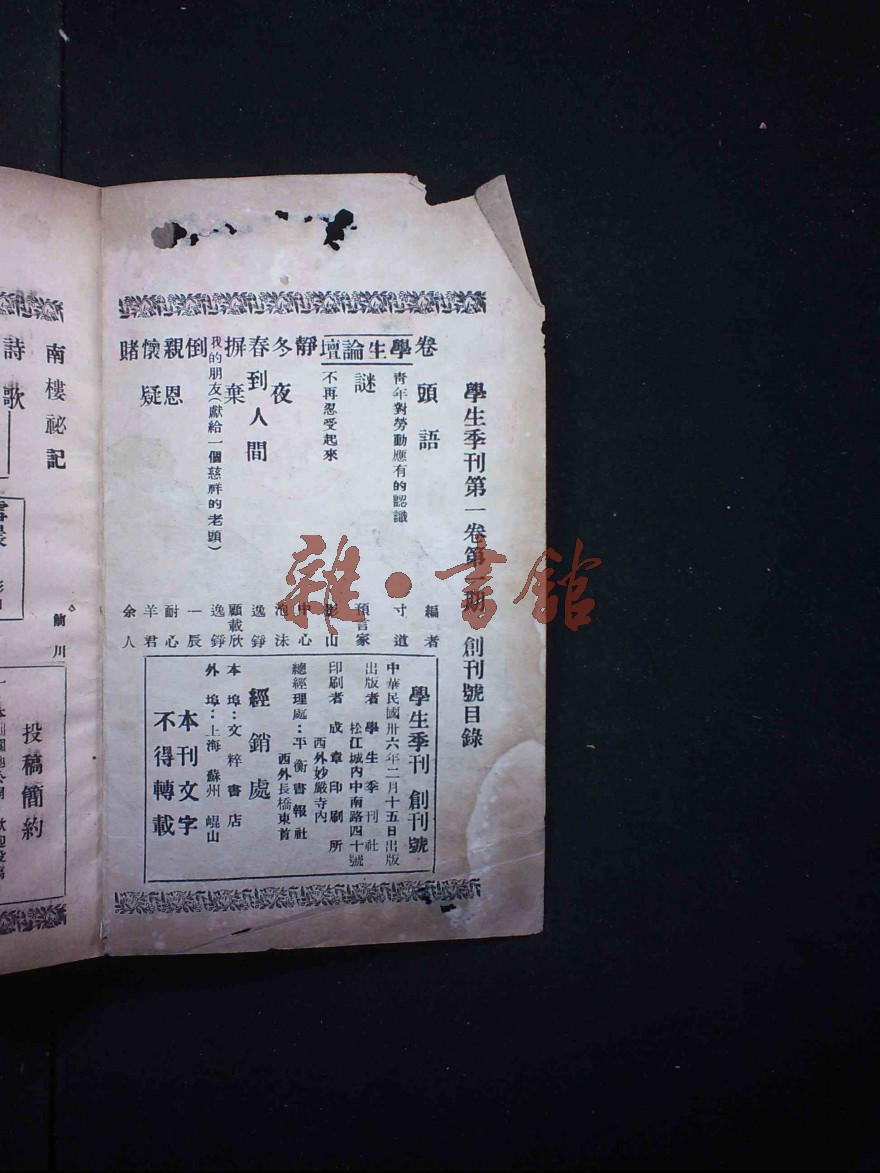 學生季刊第一卷第一期 創刊號目錄
卷頭語 編者
學生論壇
青年對勞動應有的認識 寸道
謎 預言家
不再忍受起來 影山
靜 中心
冬夜 泡沫
春到人間 逸錚
摒棄 顧載欣
我的朋友(獻給一個慈祥的老頭) 逸錚
倒 一辰
親恩 耐心
懷疑 羊君
賭 余人
學生季刊 創刊號
中華民國卅六年二月十五日出版
出版者 學生季刊社
松江城內中南路四十號
印刷者 成章印刷所
西外妙嚴寺內
總經理處:平衡書報社
西外長橋東首
經銷處
本埠:文粹書店
外埠:上海 蘇州 崐山
本刊文字
不得轉載
雜·書館
南樓祕記 川
詩歌
投稿簡約